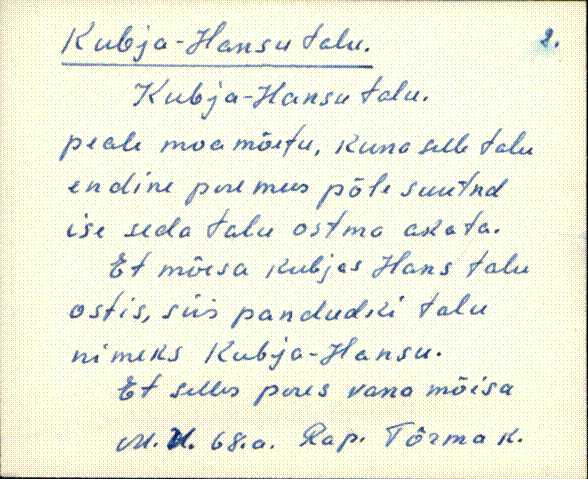 Kubja-Hansu talu. 2.
Kubja-Hansu talu.
peale moa mõetu, kuna selle talu
endine peremes põle suutnd
ise seda talu ostma akata.
Et mõisa kubjas Hans talu
ostis, siis pandudki talu
nimeks Kubja-Hansu.
Et selles peres vana mõisa
M. U. 68.a. Rap. Tõrma k.